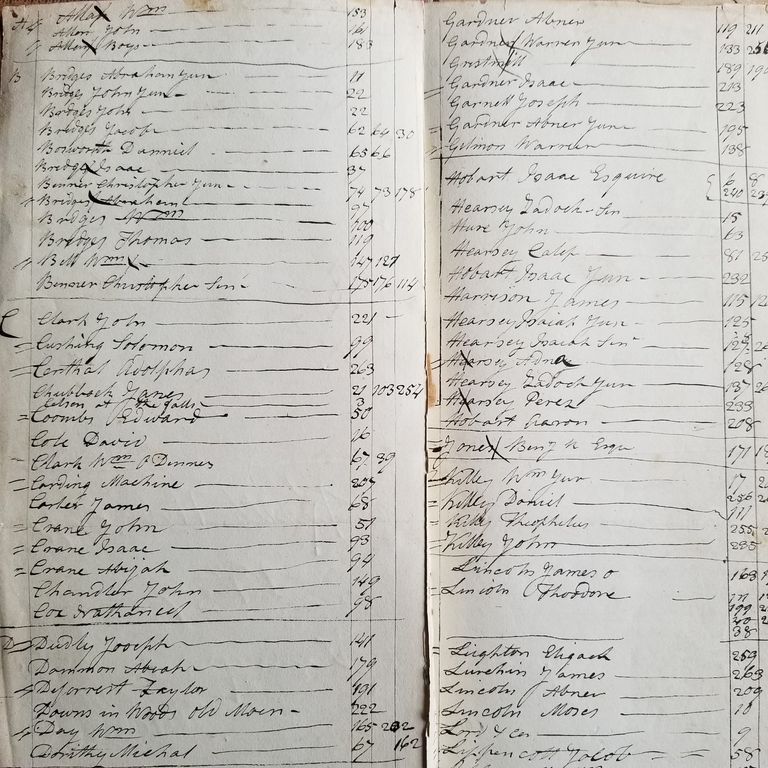 A Allan Wm 153
Allen John 161
Allen Boys 183
B Bridges Abraham Jun 11
Bridges John Jun 22
Bridges John 22
Bridges Jacob 62 64 30
Bosworth Danneil 65 66
Bridges Isaac 37
Benner Christopher Jun 74 73 178
Bridges Abraham 97
Bridges Wm 100
Bridges Thomas 119
Bell Wm 147 127
Benner Christopher Sen 175 176 114
C Clark John 221
Cushing Solomon 99
Central Adolphas 263
Chubbock James 21 103 254
at the falls 3
Coombs Edward 50
Cole David 16
Clark Wm 67 39
Carding Machine 207
Carter James 68
Crane John 51
Crane Isaac 93
Crane Abijah 94
Chandler John 149
Cox Nathaneel 98
D Dudly Joseph 141
Dammon Abiah 179
Deforrest Taylor 191
Downs in Woods old Moen 222
Day Wm 165 202
Dorithy Michal 67 162
Gardner Abner 119 211
Gardner Warren Jun 133 256
Gristmill 189 190
Gardner Isaac 213
Garnell Joseph 223
Gardner Abner Jun 195
Gilmon Warren 138
Hobart Isaac Esquire 6 8
240 237
Hearsey Zadock Sen 15
Hure John 63
Hearsey Calep 81 25
Hobart Isaac Jun 232
Harrison James 115 12
Hearsey Isaiah Jun 125
Hearsey Isaiah Sen 127 26
Hearsey Adna 128
Hearsey Zadock Jun 137 26
Hearsey Perez 233
Hobart Aaron 208
Jones Benj R Esqu 171
Killey Wm Jur 17
Killey Daniel 256
111
Killey Theophelus 255
Killey John 235
Lincoln James 163
Lincoln Theodore
199
40
38
Leighton Eligach 259
Lurchin James 263
Lincoln Abner 209
Lincoln Moses 10
Lord 9
Lippencott Jacob 58